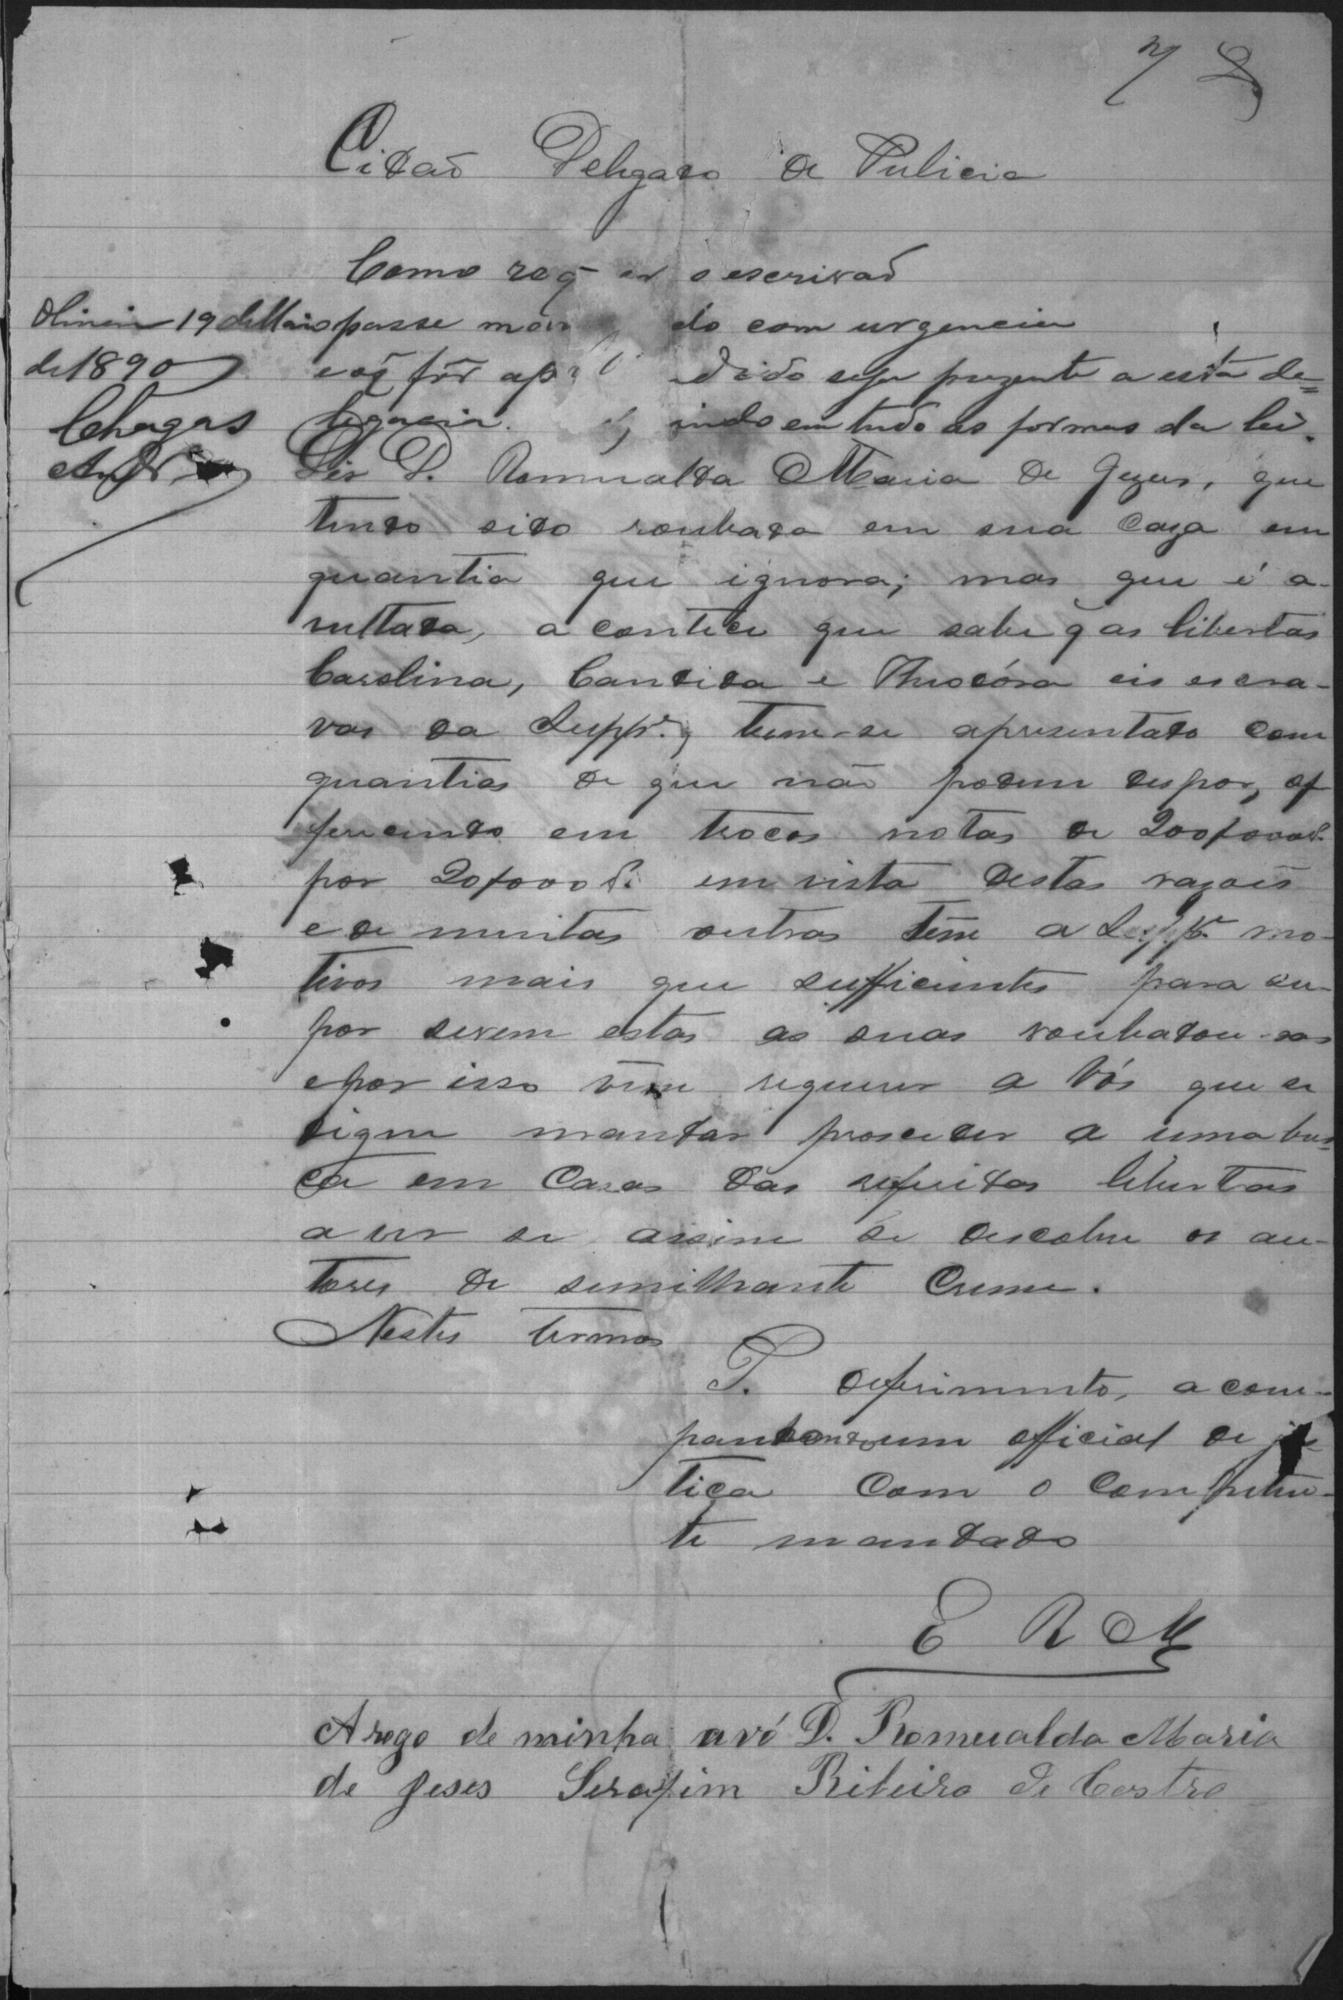 2
Cidaõ Delegado de Pulicia
Como req er o escrivaõ
Oliveira 19 de Maio passe man do com urgencia
de 1890 e oq̃ fôr ap edido seja prezente a esta de=
Chagas legacia. indo em tudo as formas da lei.
Diz D. Romualda Maria de Jezus, que
tendo sido roubada em sua Caza em
quantia que ignora; mas que é a-
vultada, acontece que sabe q̃ as libertas
Carolina, Candida e Theodóra eis escra-
vas da Suppe., tem-se apresentado com
quantias de que não podem dispor, of
ferecendo em trocos notas de 200$000 rs.
por 20$000 rs. em vista destas razois
e de muitas outras tem a Suppe. mo-
tivos mais que sufficientes para su-
por serem estas as suas roubadouras
e por isso vem requerer a Vós que se
digne mandar proseder a uma bus
ca em Casas das referidas libertas
a ver se assim se descobre os au-
tores de semilhante Crime.
Nestes termos
P. deferimento, acom-
panhando um official de jus
tiça Com o Competen-
te mandado
E R M
A rogo de minha avó D. Romualda Maria
de Jeses Serafim Ribeiro de Castro